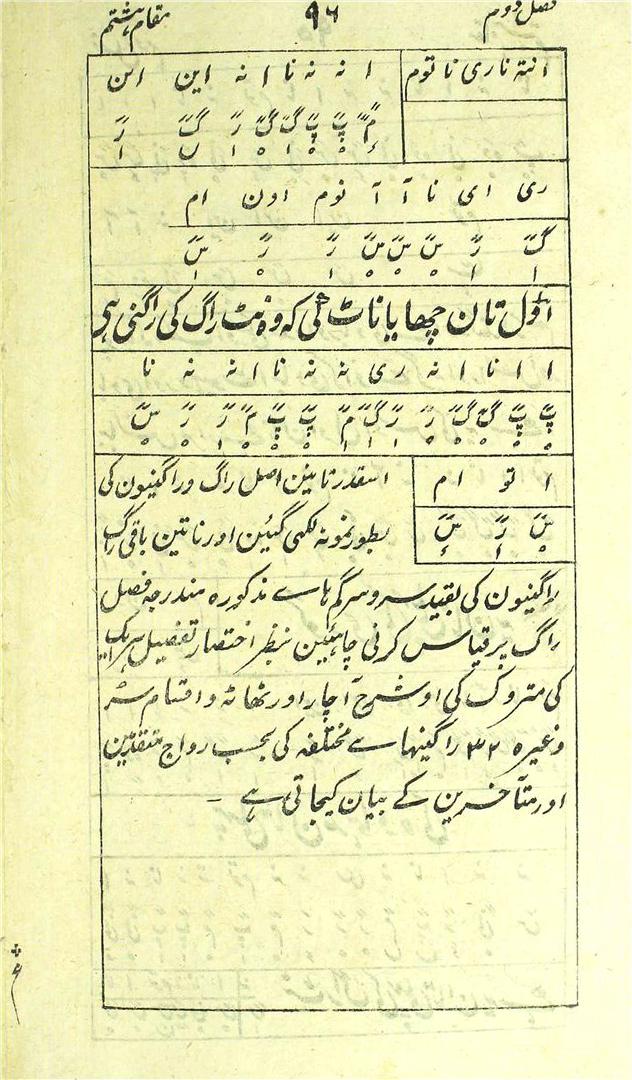 فصل دوم ۹۶ مقام ہشتم
انتہ ناری نا توم
ا نہ نہ نا ا نہ این این
مً پً پً گً گً رً گً رً
ری ای نا آ آ نوم اون ام
گً رً سً سً سً رً رً سً
اوّل تان چھایا ناٹ کی کہ وہ نٹ راگ کی راگنی ہی
ا ا نا ا نہ ری نہ نہ نا ا نہ نہ نا
پً پً گً گً رً رً گً مً پً پً مً رً رً سً
ا تو ام
سً رً سً
اسقدر تانین اصل راگ و راگنیون کی
بطور نمونہ لکھی گئین اور تانین باقی راگ
راگنیون کی بقید سر و سرگم ہاے مذکورہ مندرجہ فصل
راگ پر قیاس کرنی چاہئین بنظر اختصار تفصیل ہر یک
کی متروک کی او شرح آچار اور ٹھاٹہ و اقسام سُر
وغیرہ ۳۲ راگنیہاے مختلفہ کی بحسب رواج متقدّمین
اور متأخرین کے بیان کیجاتی ہے ۔